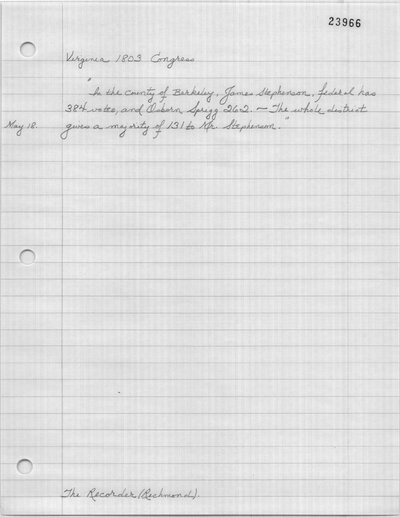 23966
Virginia 1803 Congress
"In the county of Berkeley, James Stephenson, federal has
384 votes, and Osborn Sprigg 262. — The whole district
May 18. gives a majority of 131 to Mr. Stephenson."
The Recorder (Richmond).